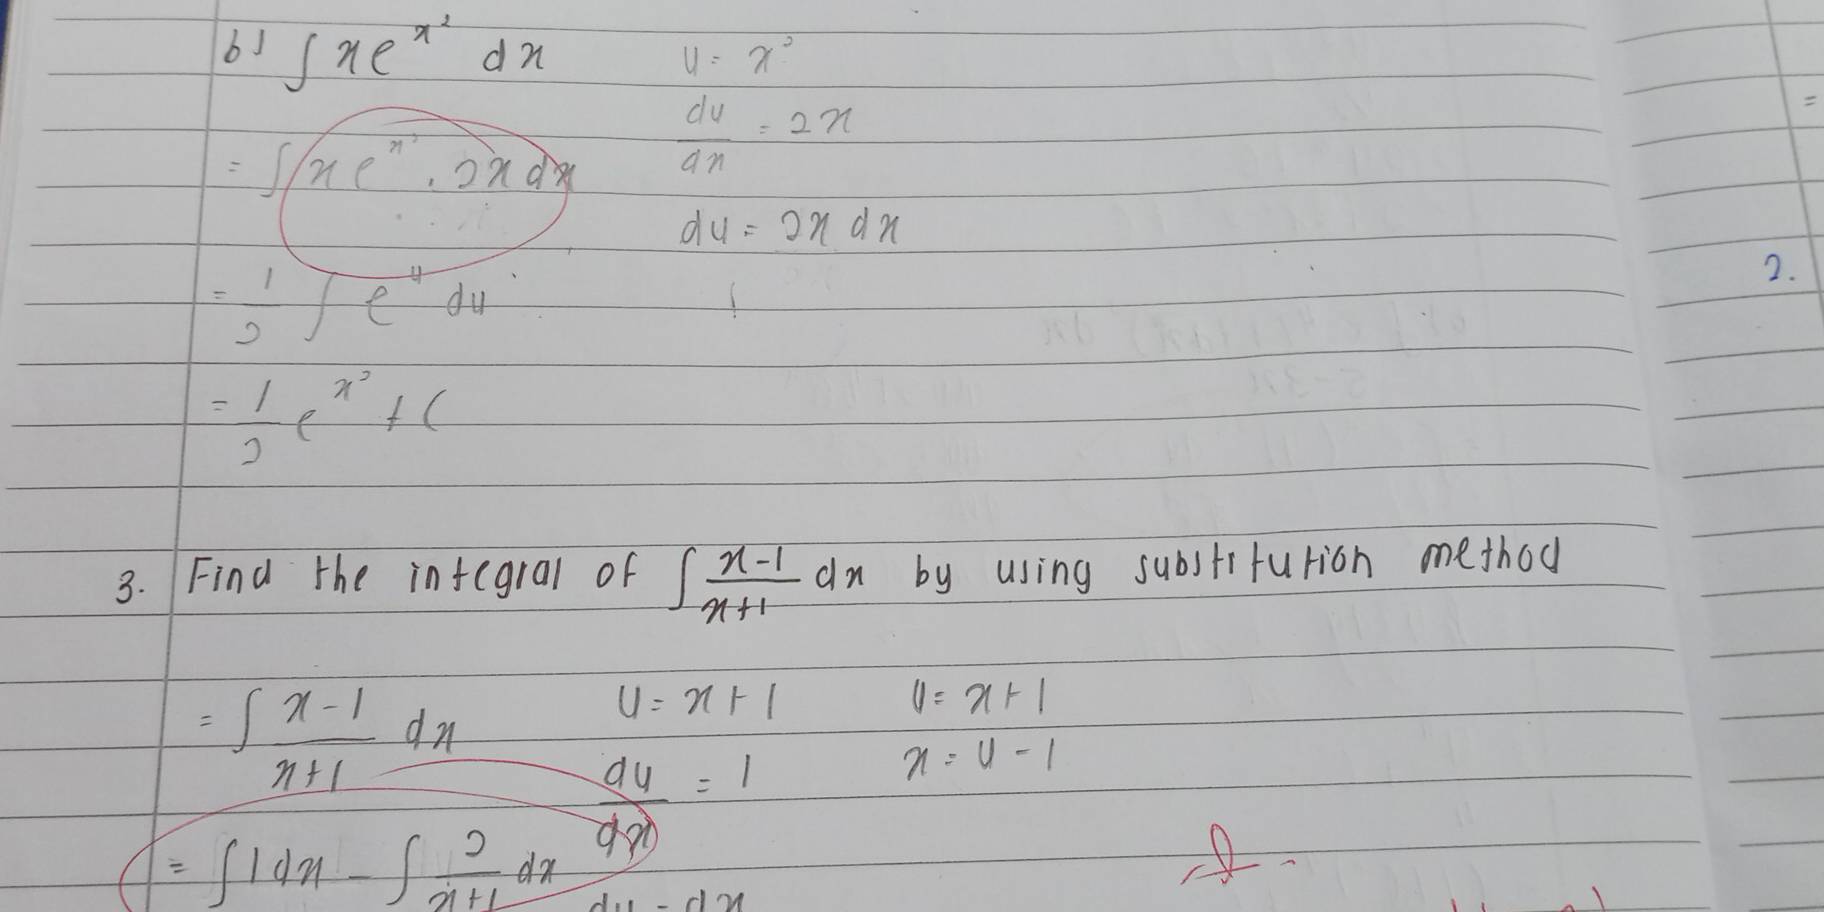 b) ∫ xe^x² dx    u = x²
du/dx = 2x
= ∫ xe^x² . 2x dx
du = 2x dx
= 1/2 ∫ e^u du
= 1/2 e^x² + C
2.
3. Find the integral of ∫ x-1/x+1 dx by using substitution method
= ∫ x-1/x+1 dx    u = x+1    u = x+1
du/dx = 1    x = u-1
= ∫ 1 dx - ∫ 2/x+1 dx
du = dx